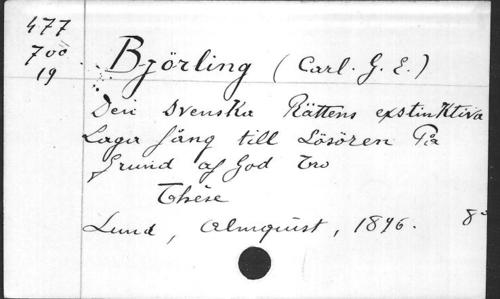 477
700
19
Björling (Carl. G. E.)
Den Svenska Rättens exstinktiva
Laga fång till Lösören På
Grund af God Tro
Thèse
Lund, Almquist, 1896. 8°